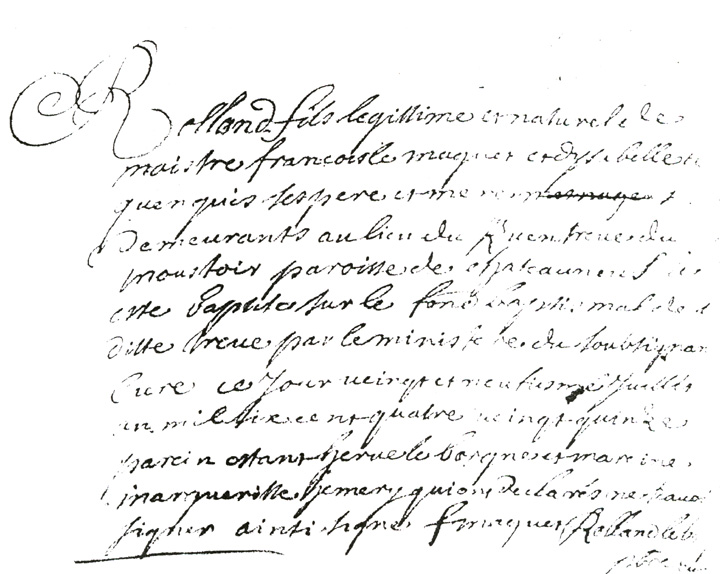 Rolland fils legittime et naturel de
maistre francois le maguer et dysabelle
querquis ses pere et mere
Demeurants au lieu du treve du
moustoir paroisse de chateauneuf
este baptise sur le font baptismal de
ditte treve par le ministere du soubsignan
Cure ce Jour veingt et neufiesme Juillet
an mil six cent quatre veingt quinze
parein estant herve le borgne et mareine
margueritte hemery qui ont declarés ne scavoi
signer ainsi signe f maguer Rolland le b